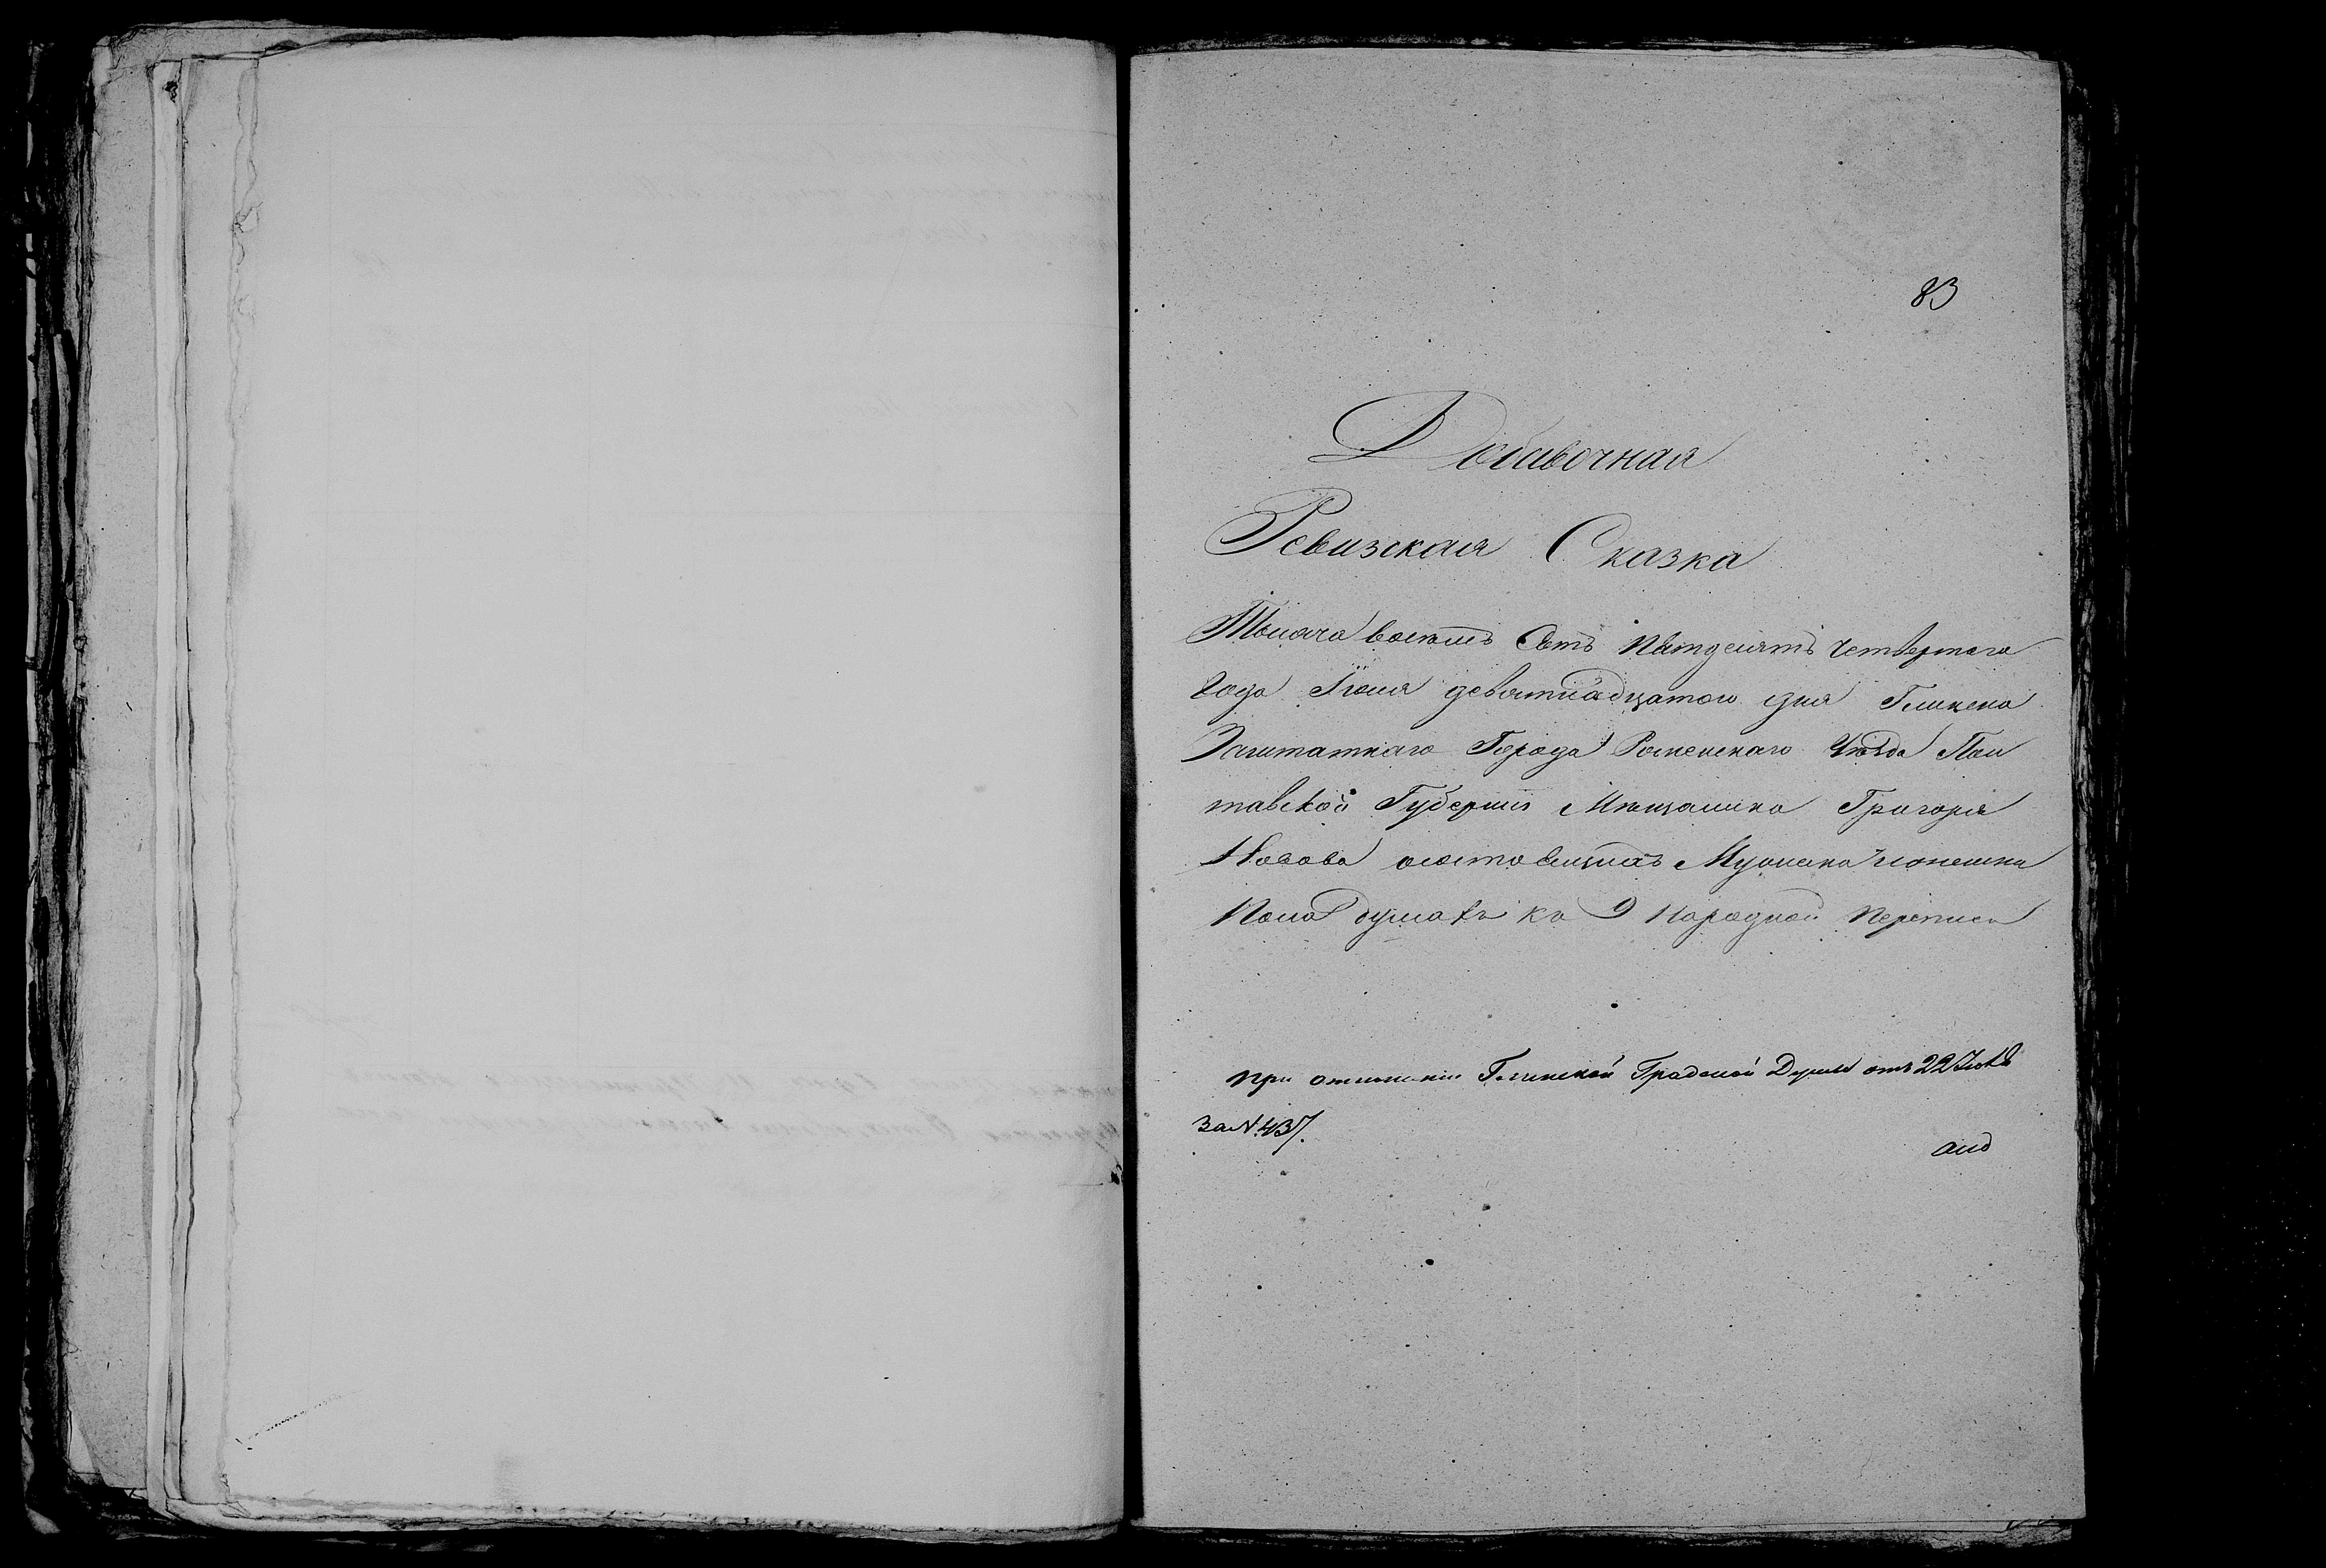 83
Добавочная
Ревизская Сказка
Тысяча восемь Сотъ Пятдесятъ четвертого
Года Іюня девятнадцатого дня Глинска
Заштатнаго Города Роменскаго Уѣзда Пол
тавской Губерніи Мещанина Григорія
Носова Мужеска и женска
Пола душахъ къ 9 Народной переписи
При отношеніи Глинской Градской Думы отъ 22 Іюня
за N. 437.